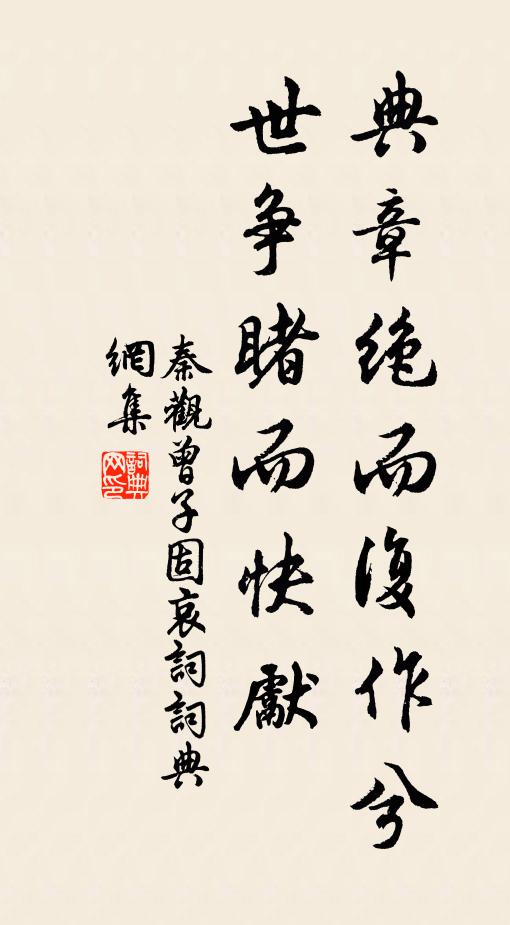 典章绝而復作兮
世爭睹而快獻
秦觀曾子固哀詞詞典
網集
詞典网印